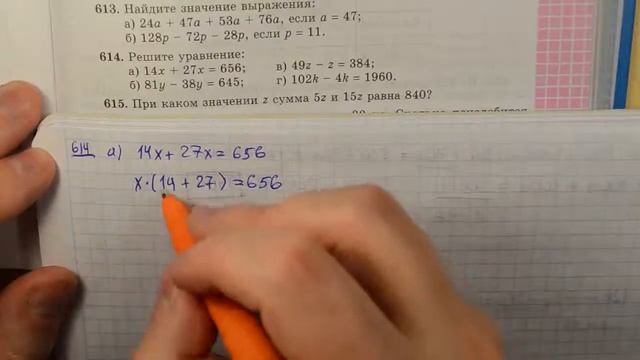 613. Найдите значение выражения:
а) 24a + 47a + 53a + 76a, если a = 47;
б) 128p − 72p − 28p, если p = 11.
614. Решите уравнение:
а) 14x + 27x = 656; в) 49z − z = 384;
б) 81y − 38y = 645; г) 102k − 4k = 1960.
615. При каком значении z сумма 5z и 15z равна 840?
614 а) 14x + 27x = 656
x·(14 + 27) = 656